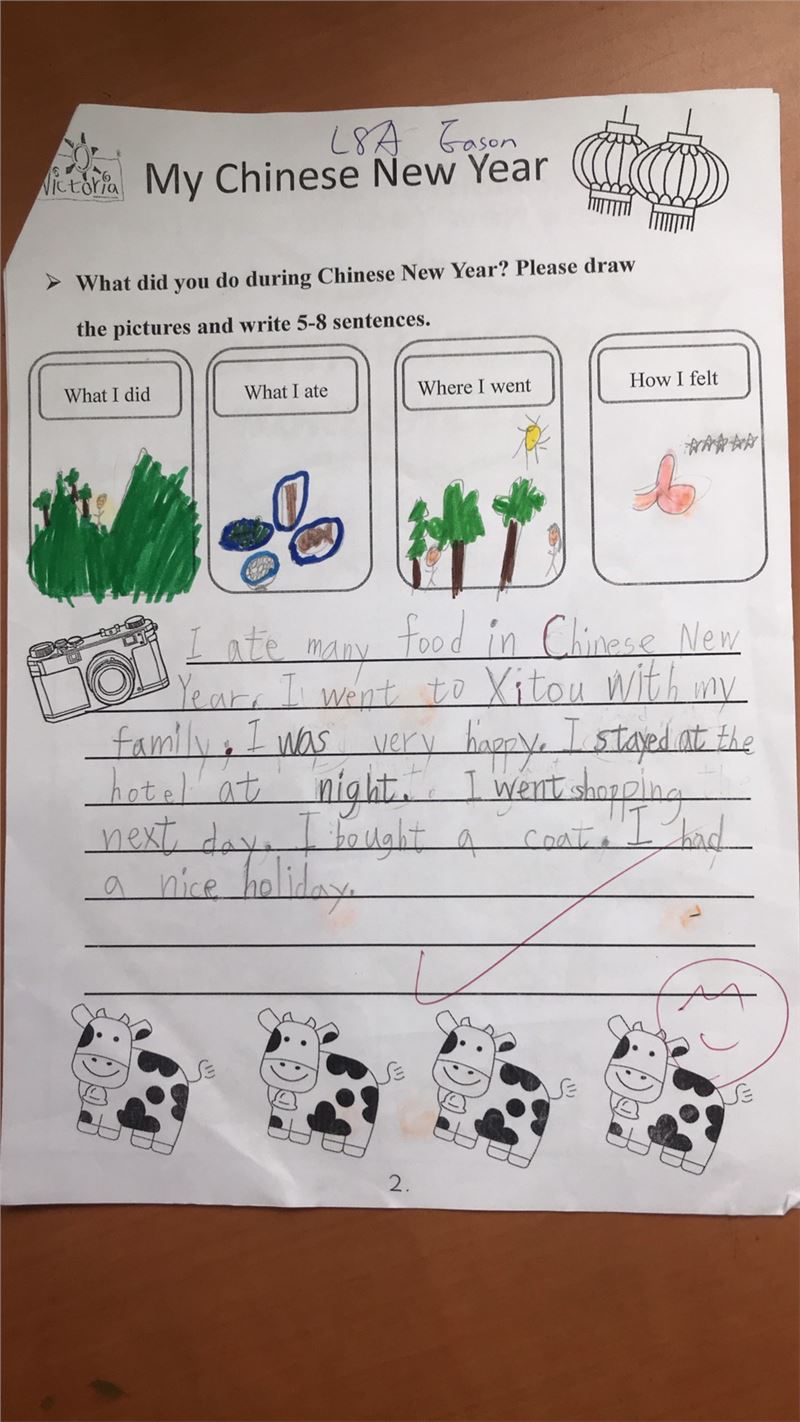 L8A Eason
Victoria
My Chinese New Year
➢ What did you do during Chinese New Year? Please draw
the pictures and write 5-8 sentences.
What I did
What I ate
Where I went
How I felt
I ate many food in Chinese New
Year. I went to Xitou with my
family. I was very happy. I stayed at the
hotel at night. I went shopping
next day. I bought a coat. I had
a nice holiday.
2.